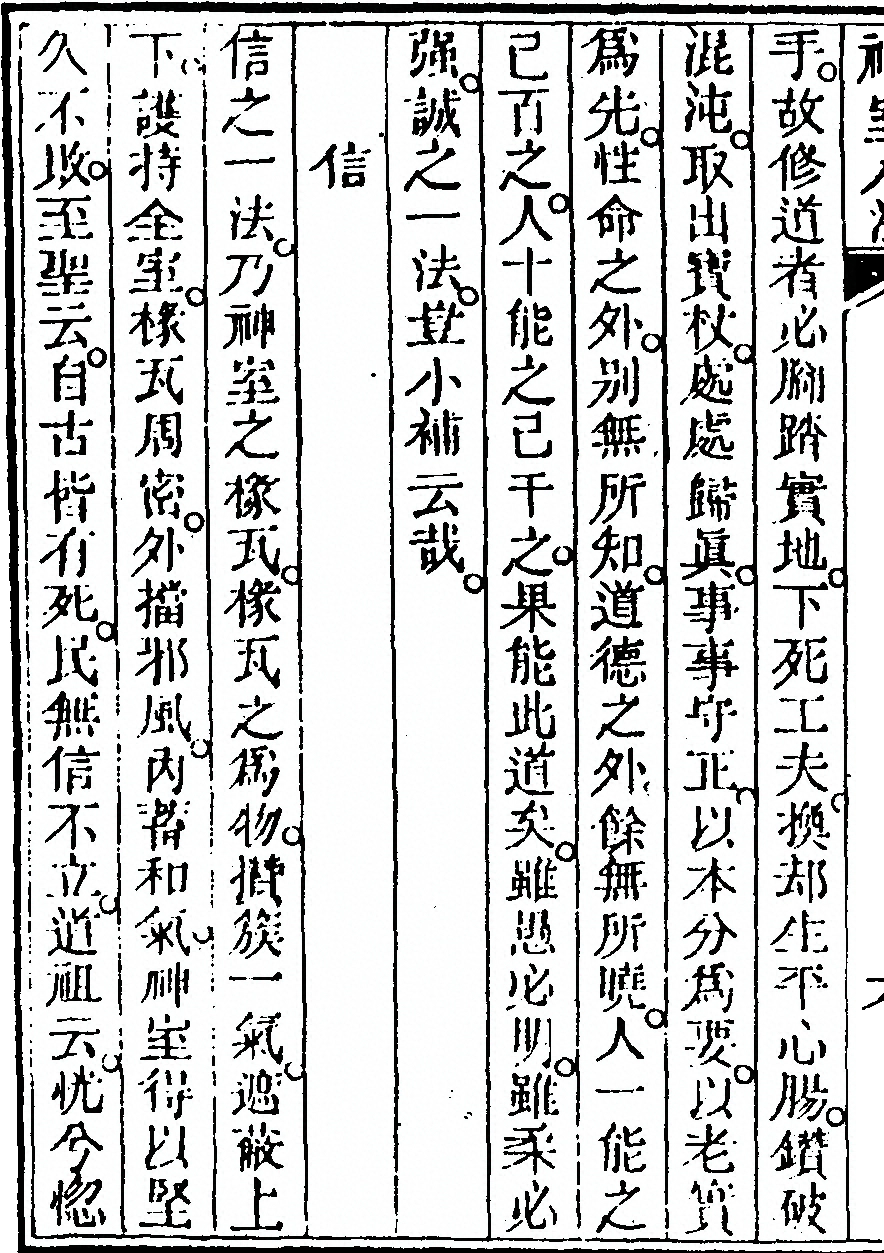 神室八法
手故修道者必脚踏實地下死工夫換却生平心腸鑽破
混沌取出寶杖處處歸眞事事守正以本分爲要以老實
爲先性命之外別無所知道德之外餘無所曉人一能之
己百之人十能之己千之果能此道矣雖愚必明雖柔必
强誠之一法豈小補云哉
信
信之一法乃神室之椽瓦椽瓦之爲物攢簇一氣遮蔽上
下護持全室椽瓦周密外擋邪風內蓄和氣神室得以堅
久不敗至聖云自古皆有死民無信不立道祖云恍兮惚